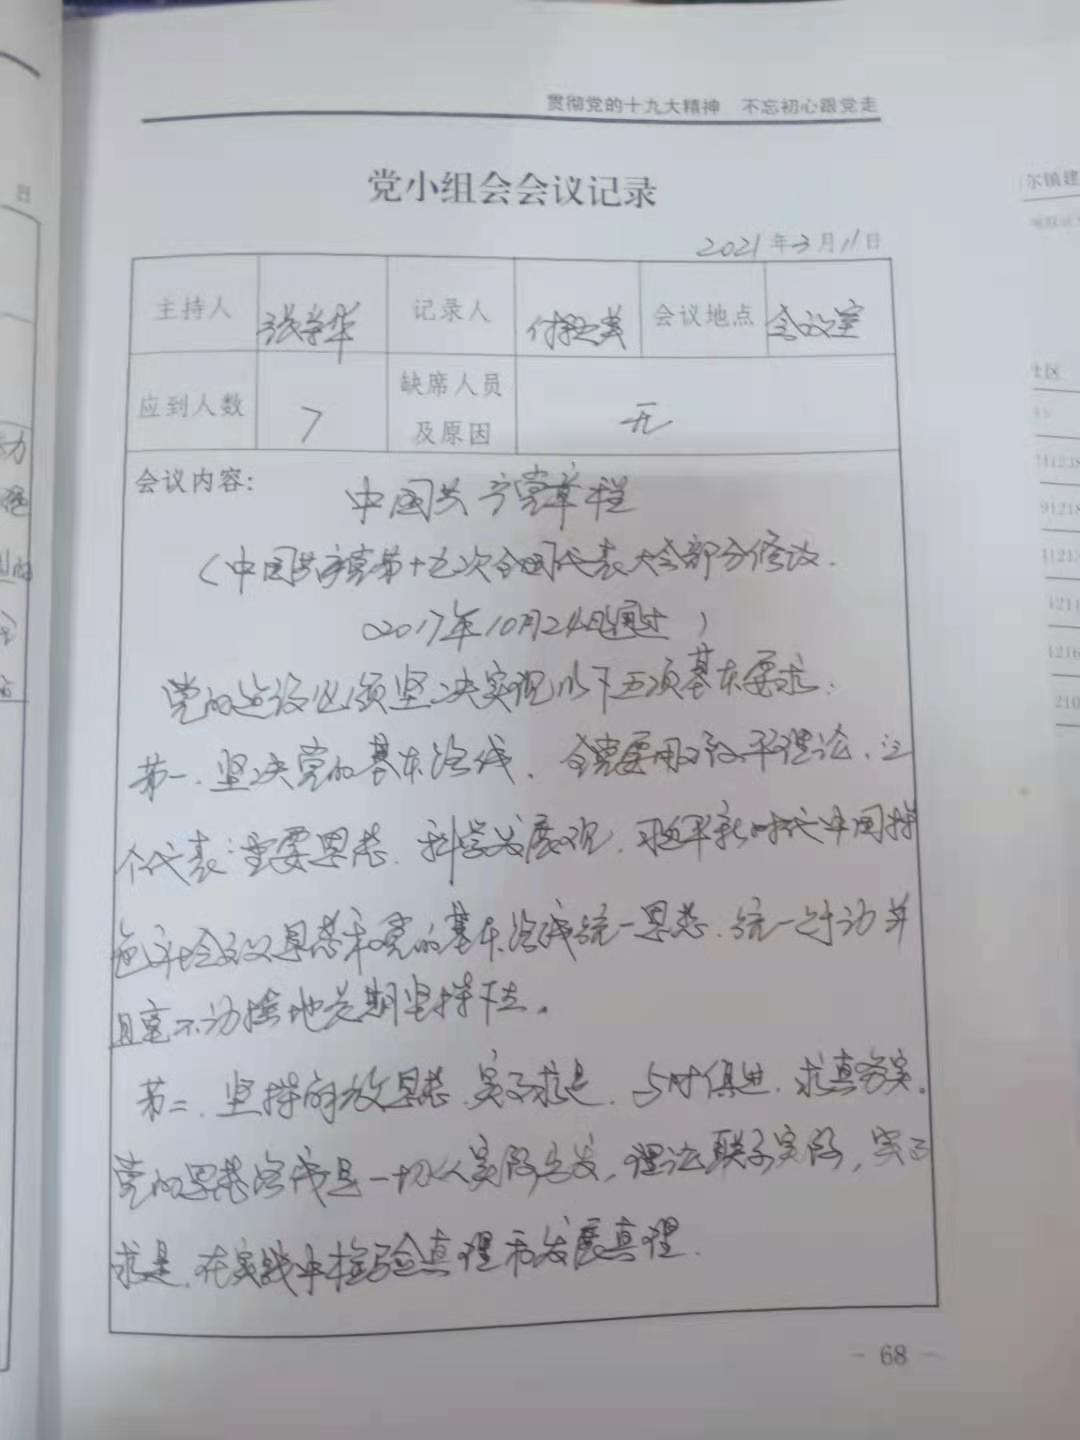 贯彻党的十九大精神 不忘初心跟党走
党小组会会议记录
2021年3月11日
主持人 张学华 记录人 会议地点 会议室
应到人数 7 缺席人员及原因 无
会议内容：
中国共产党章程
（中国共产党第十九次全国代表大会部分修改.
2017年10月24日通过）
党的建设必须坚决实现以下五项基本要求：
第一、坚决党的基本路线、全党要用邓小平理论、三
个代表重要思想、科学发展观、习近平新时代中国特
色社会主义思想和党的基本路线统一思想、统一行动并
且毫不动摇地长期坚持下去。
第二、坚持解放思想、实事求是、与时俱进、求真务实.
党的思想路线是一切从实际出发，理论联系实际，实事
求是，在实践中检验真理和发展真理.
- 68 -
日
尔镇建
社区